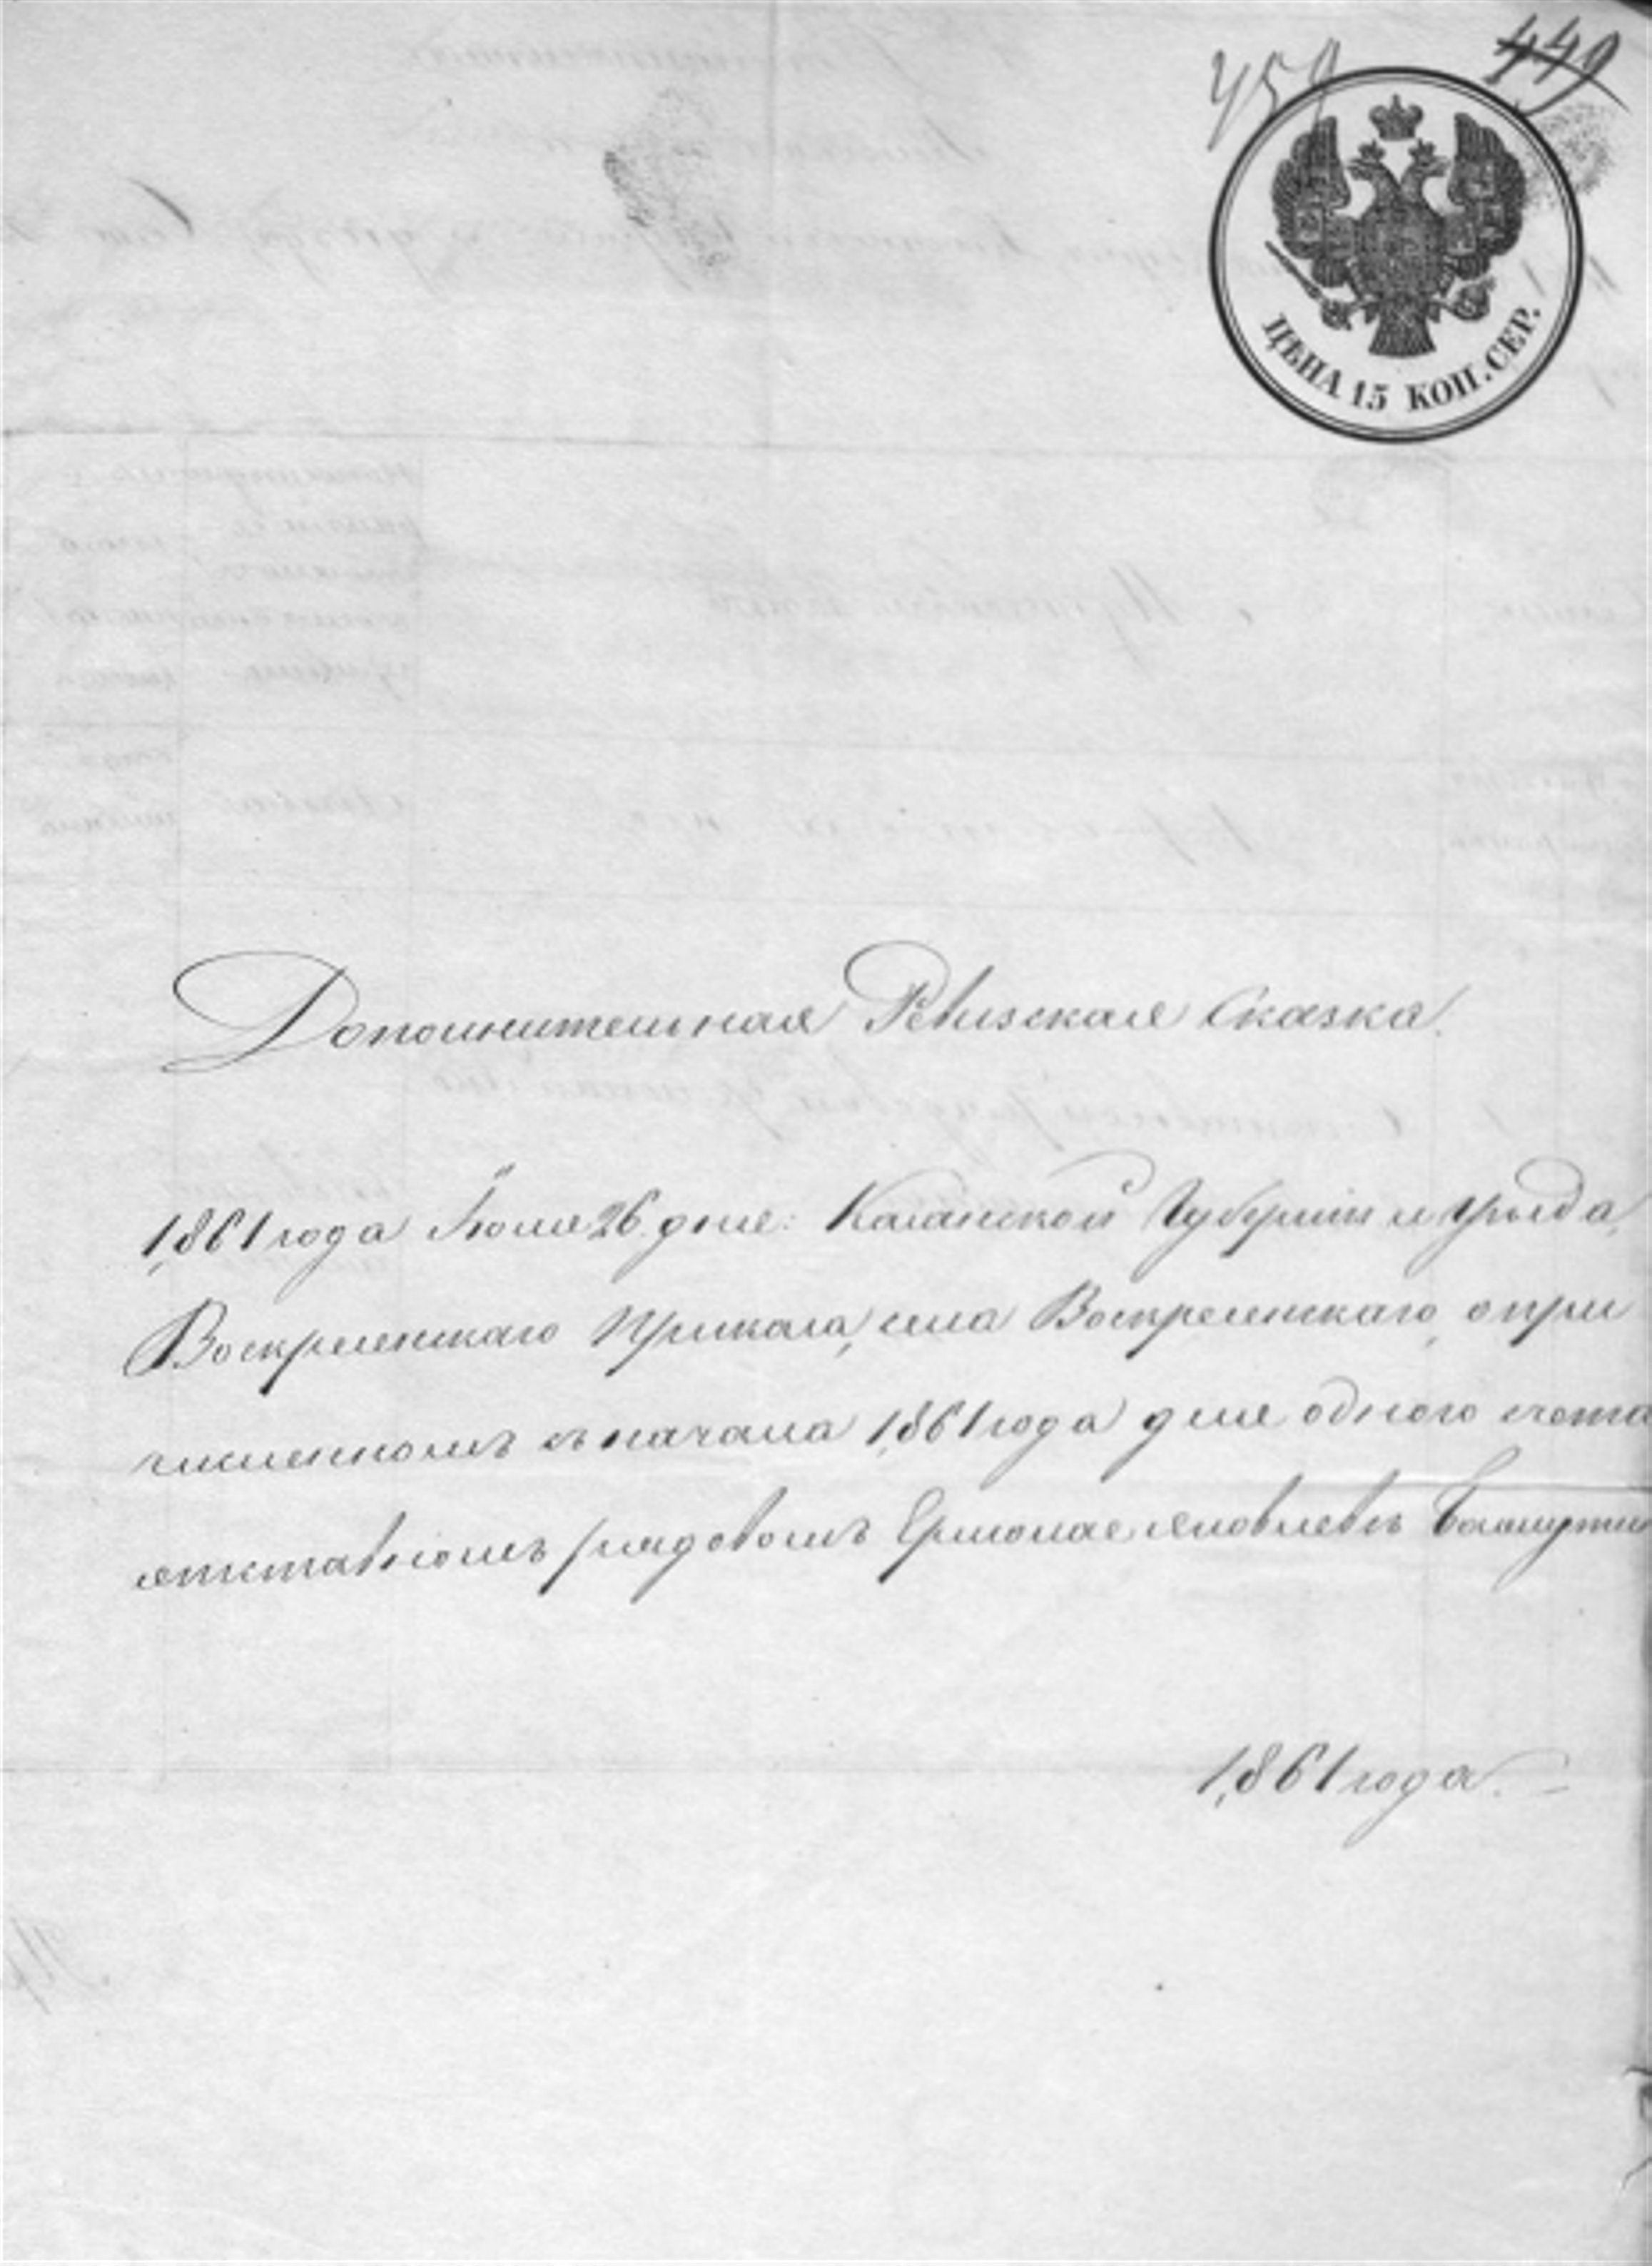 459 449
ЦѢНА 15 КОП. СЕР.
Дополнительная Ревизская Сказка.
1861 года Июля 26 дня: Казанской Губерніи и уѣзда,
Воскресенскаго Приказа, села Воскресенскаго, о при
численномъ съ начала 1861 года для одного счета
отставномъ рядовомъ Ермолае Яковлевѣ
1861 года.